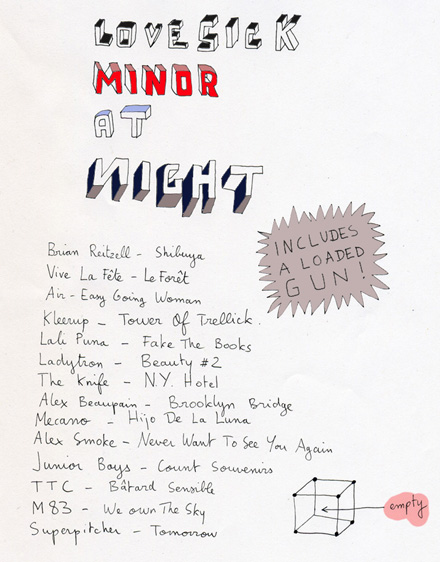 LOVESICK
MINOR
AT
NIGHT
INCLUDES
A LOADED
GUN!
Brian Reitzell - Shibuya
Vive La Fête - Le Forêt
Air - Easy Going Woman
Kleerup - Tower Of Trellick.
Lali Puna - Fake The Books
Ladytron - Beauty #2
The Knife - N.Y. Hotel
Alex Beaupain - Brooklyn Bridge
Mecano - Hijo De La Luna
Alex Smoke - Never Want To See You Again
Junior Boys - Count Souvenirs
TTC - Bâtard Sensible
M83 - We own The Sky
Superpitcher - Tomorrow
empty